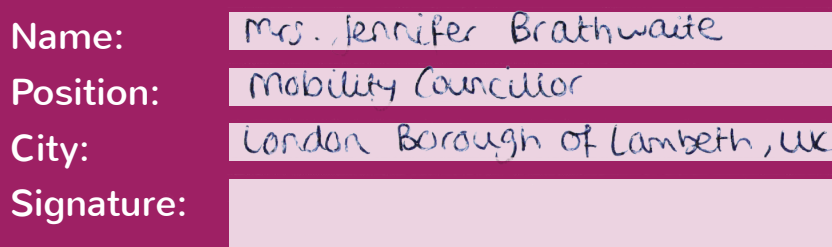 Name: Mrs. Jennifer Brathwaite
Position: Mobility Councillor
City: London Borough of Lambeth, UK
Signature: